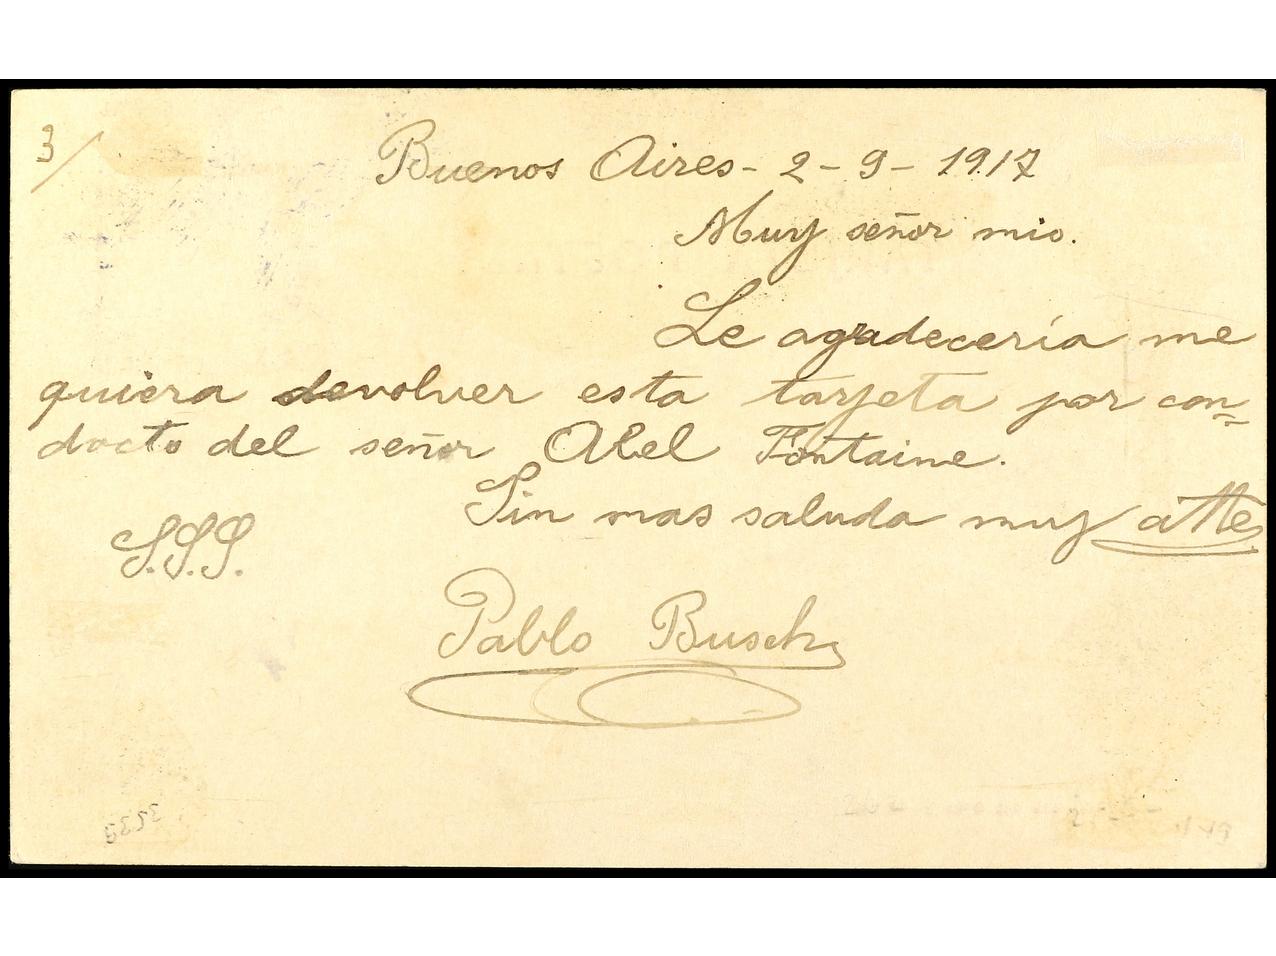 3/
Buenos Aires - 2 - 9 - 1917
Muy señor mio.
Le agradecería me
quiera devolver esta tarjeta por con=
docto del señor Abel Fontaine.
Sin mas saluda muy atte
S.S.S.
Pablo Busch